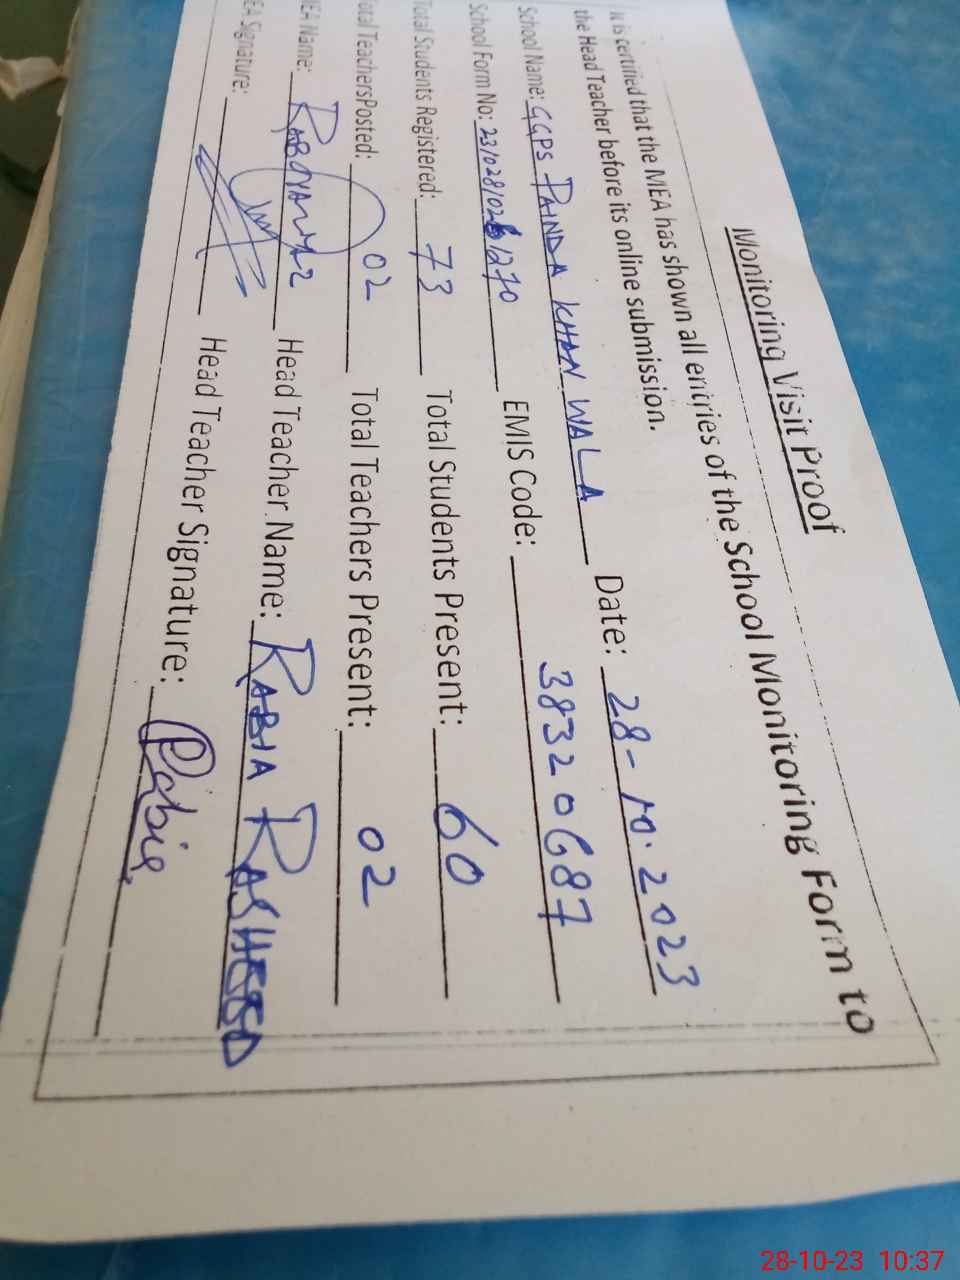 Monitoring Visit Proof
It is certified that the MEA has shown all entries of the School Monitoring Form to
the Head Teacher before its online submission.
School Name: GGPS PAINDA KHAN WALA Date: 28-10.2023
School Form No: EMIS Code: 38320687
Total Students Registered: 73 Total Students Present: 60
Total TeachersPosted: 02 Total Teachers Present: 02
MEA Name: Head Teacher Name: RABIA RASHEED
EA Signature: Head Teacher Signature: Rabia
28-10-23 10:37